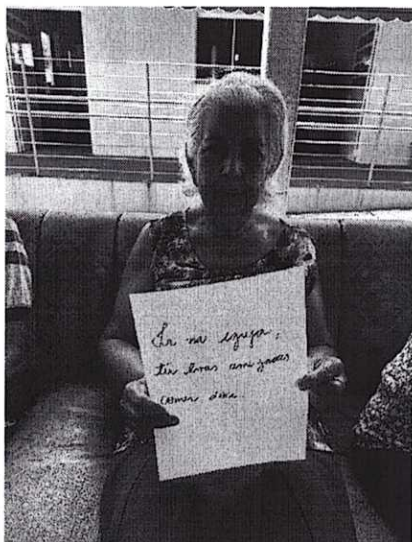 Ir na igreja,
ter boas amizades
comer doce.